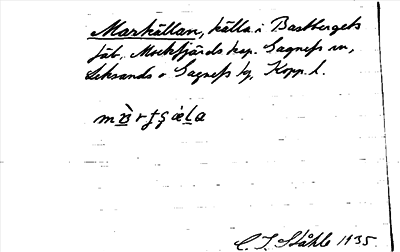 Markällan, källa i Bastbergets
fäb., Mockfjärds kap. Gagnefs sn,
Leksands o Gagnefs tg, Kopp. l.
C. I. Ståhle 1935.